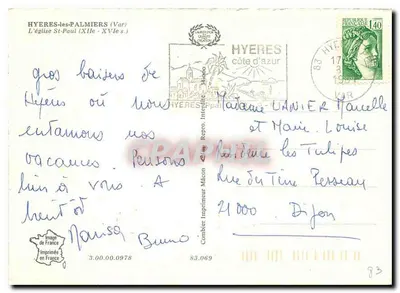 HYERES-les-PALMIERS (Var)
L'église St-Paul (XIIe - XVIe s.)
gros baisers de
Hyères où nous
entamons nos
vacances. Pensons
bien à vous. A
bientôt
Marisa Bruno
HYERES
côte d'azur
HYERES
83 HYERES
17
VAR
REPUBLIQUE FRANCAISE
1,40
Madame VANIER Marcelle
et Marie-Louise
Résidence les Tulipes
Rue du Tire Pesseau
21000 Dijon
Combier Imprimeur Mâcon
Image
de France
Imprimée
en France
3.00.00.0978
53.069
93